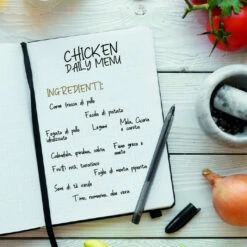 CHICKEN
DAILY MENU
INGREDIENTI:
Carne fresca di pollo
Fecola di patate
Fegato di pollo
idrolizzato
Legumi
Mela, Cicoria
e carota
Calendula, gardenia, salvia
Fieno greco e
Frutti rossi, tarassaco
Foglie di menta piperita
Semi di tè verde
Timo, rosmarino, aloe vera